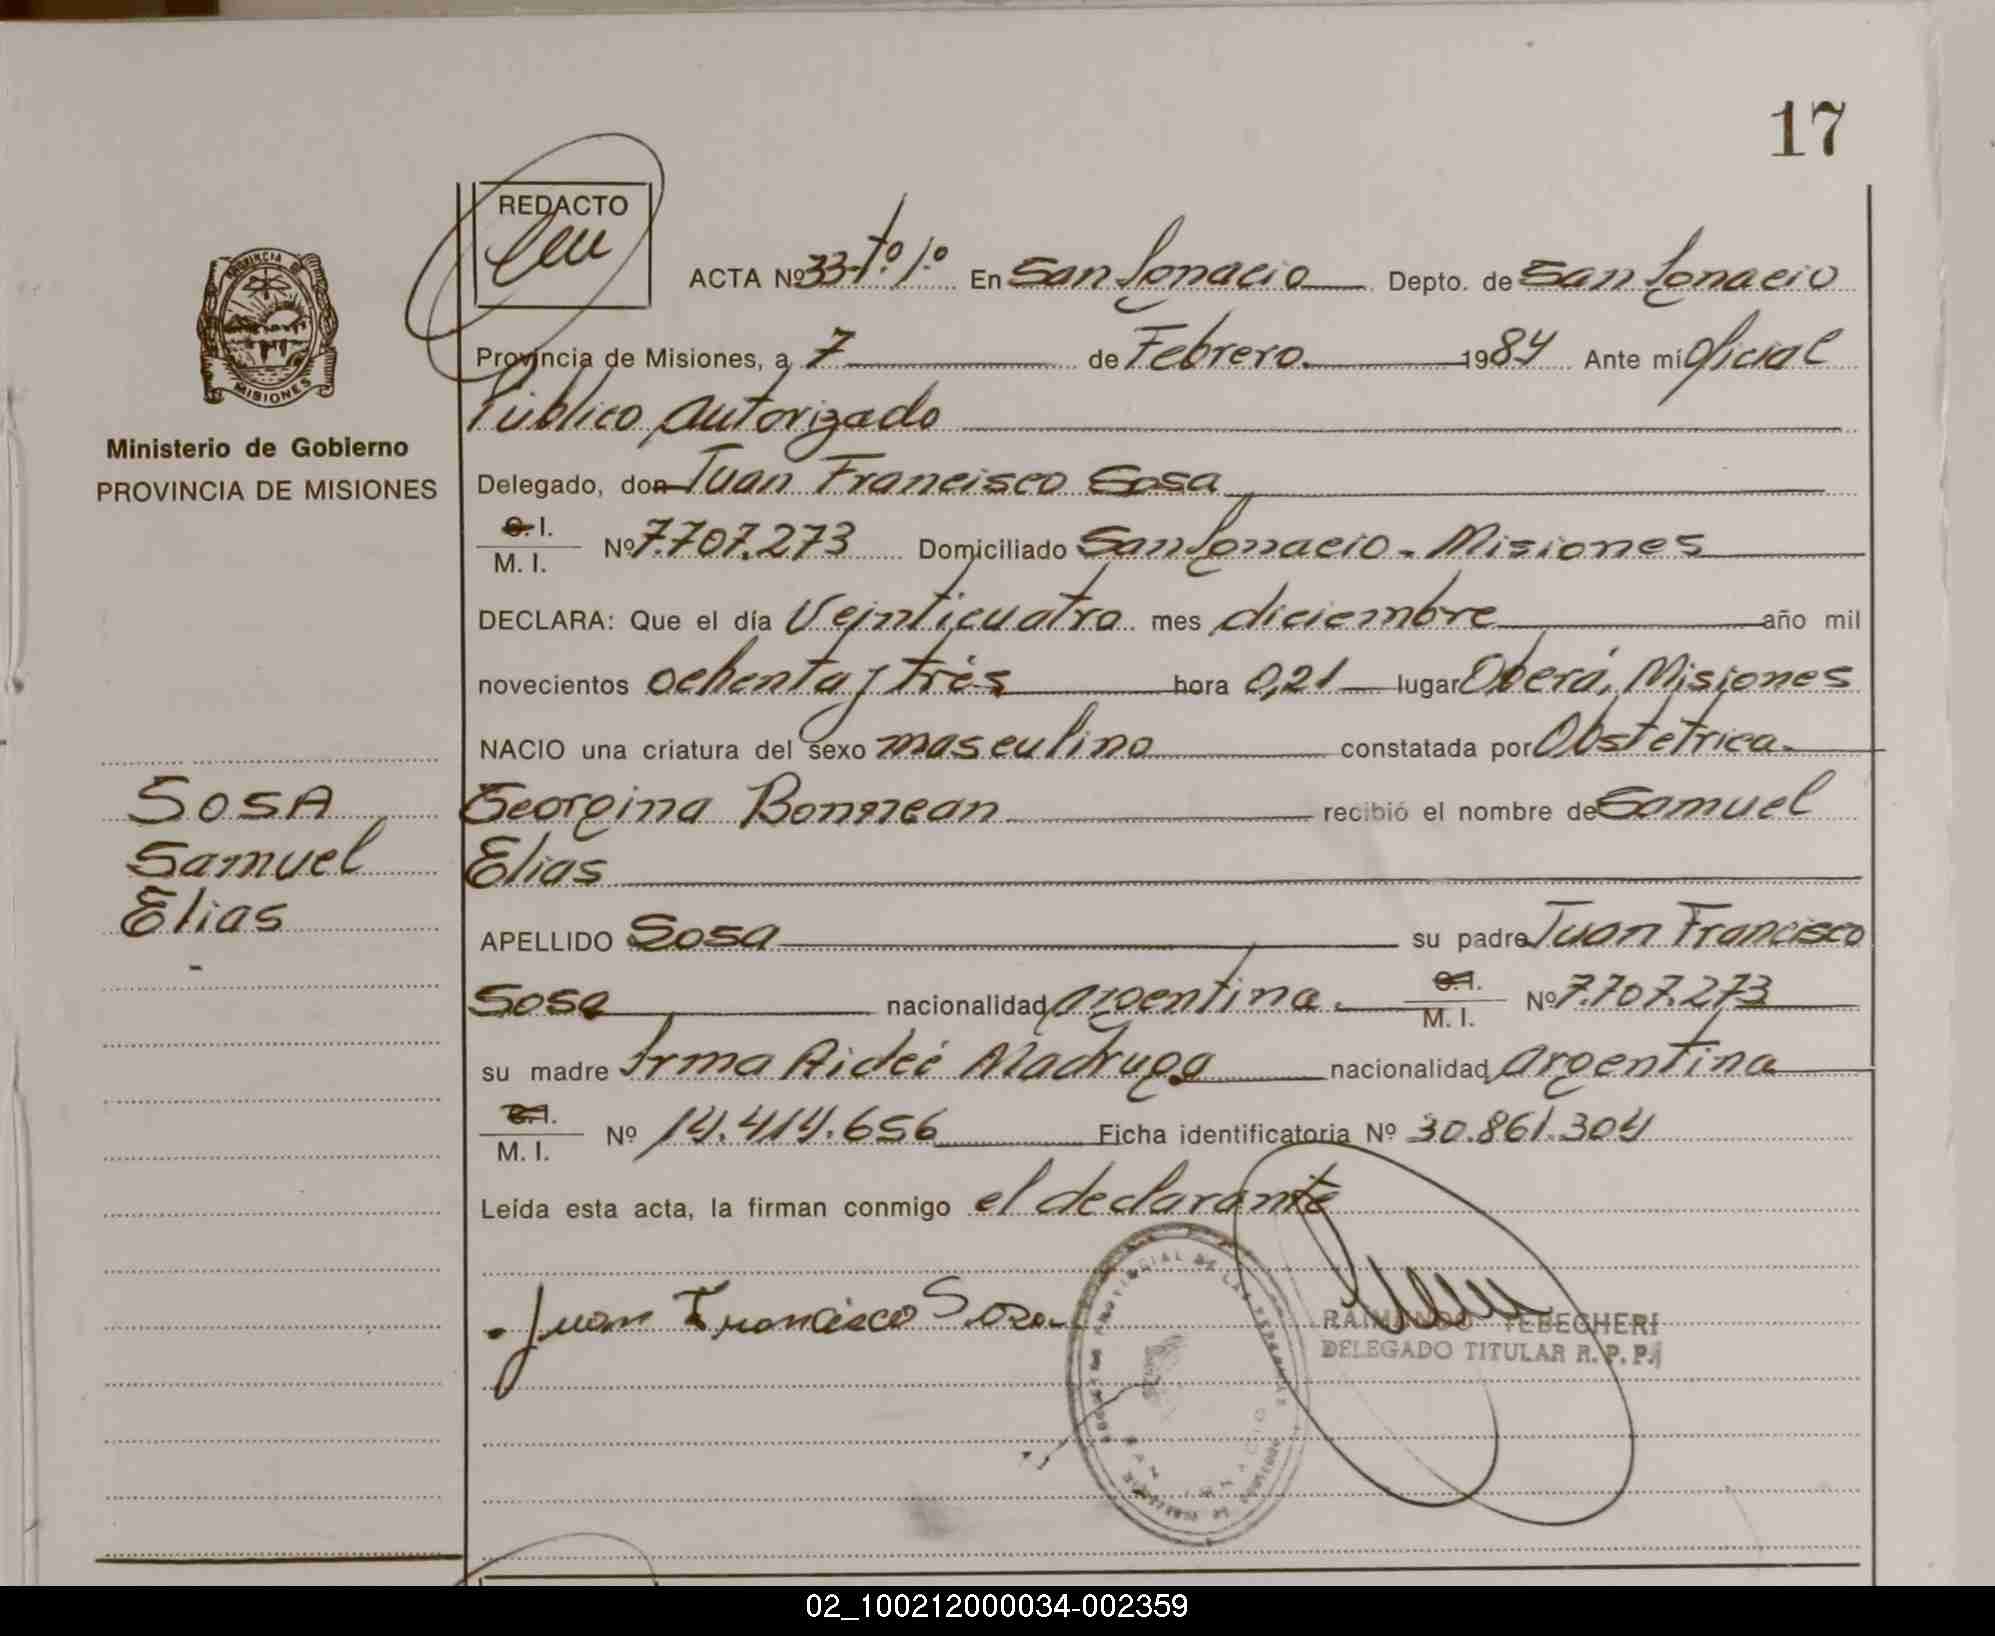 17
REDACTO
ACTA Nº 33-tº1º En San Ignacio Depto. de San Ignacio
Provincia de Misiones, a 7 de Febrero 1984 Ante mi Oficial
Público Autorizado
Delegado, don Juan Francisco Sosa
C. I.
M. I. Nº 7.707.273 Domiciliado San Ignacio - Misiones
DECLARA: Que el día Veinticuatro mes diciembre año mil
novecientos ochenta y tres hora 0,21 lugar Oberá, Misiones
NACIO una criatura del sexo masculino constatada por Obstetrica
Georgina Bonnean recibió el nombre de Samuel
Elias
APELLIDO Sosa su padre Juan Francisco
Sosa nacionalidad argentina. C.I. M. I. Nº 7.707.273
su madre Irma Aideé Madruga nacionalidad argentina
C.I.
M. I. Nº 14.414.656 Ficha identificatoria Nº 30.861.304
Leída esta acta, la firman conmigo el declarante
Juan Francisco Sosa
RAIMUNDO TEBECHERI
DELEGADO TITULAR R. P. P.
PROVINCIA DE
MISIONES
Ministerio de Gobierno
PROVINCIA DE MISIONES
SOSA
Samuel
Elias
02_100212000034-002359